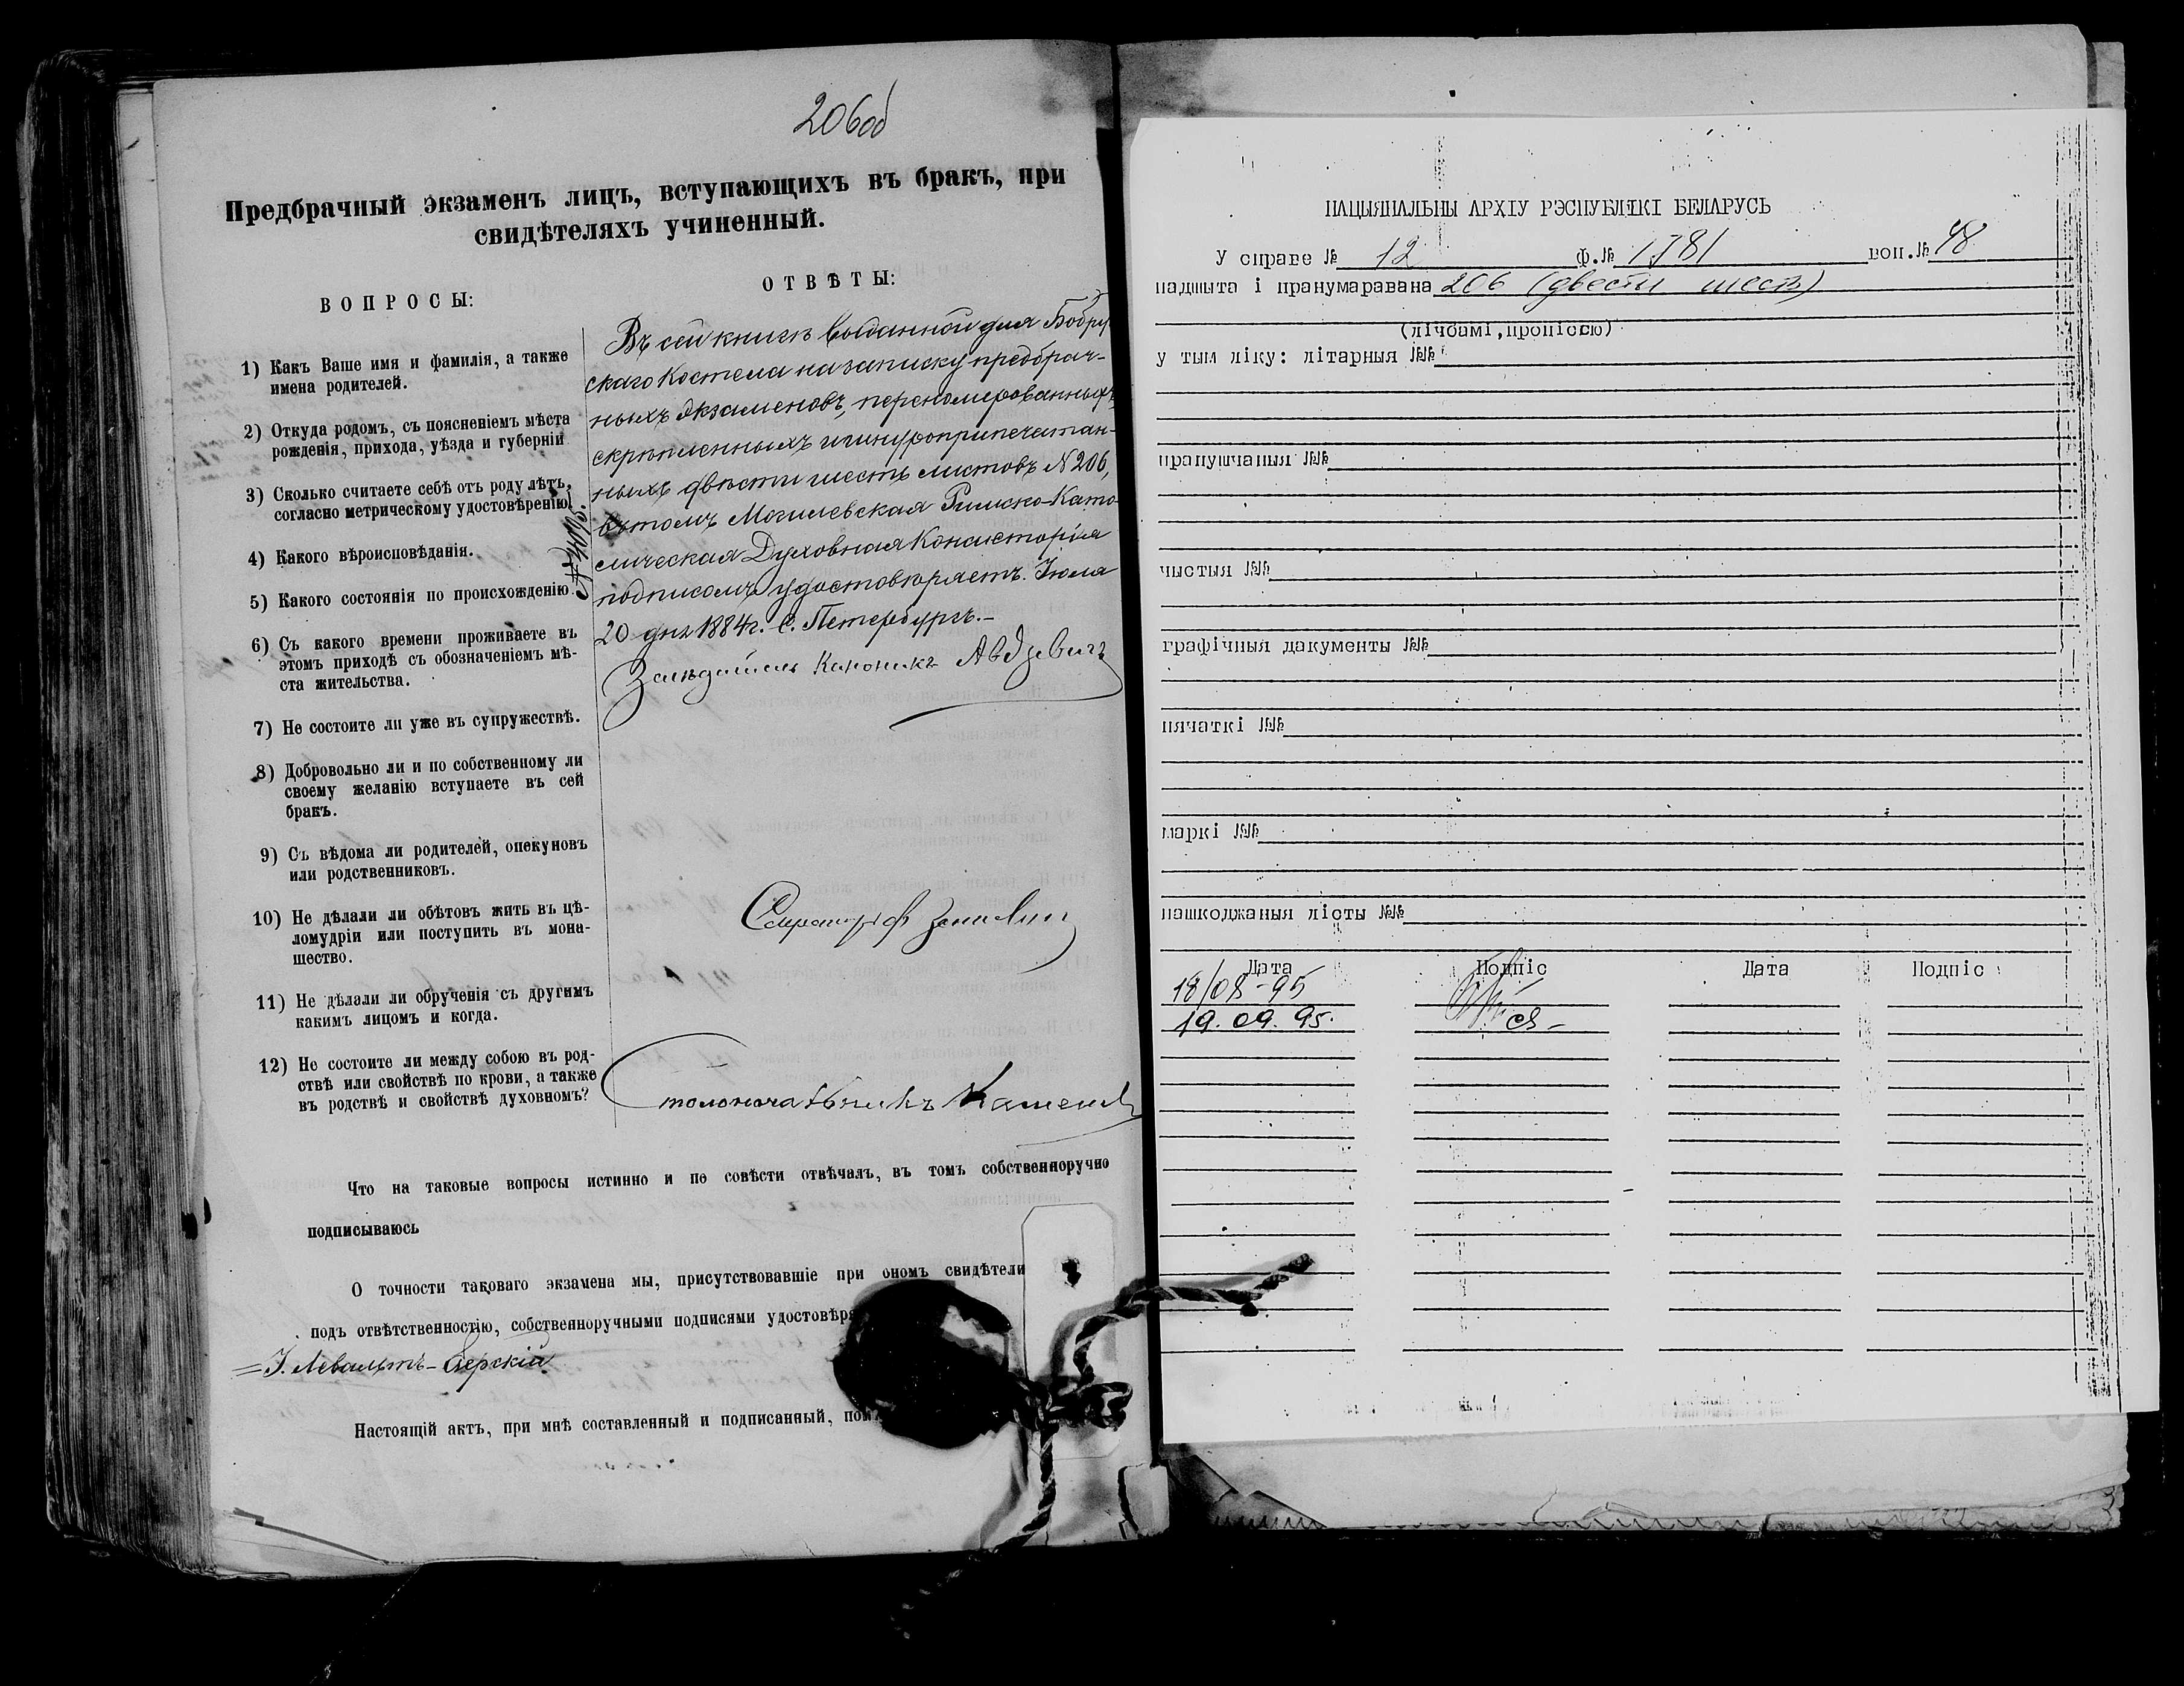 206об
Предбрачный экзаменъ лицъ, вступающихъ въ бракъ, при
свидѣтеляхъ учиненный.
ВОПРОСЫ:
ОТВѢТЫ:
1) Какъ Ваше имя и фамилія, а также
имена родителей.
2) Откуда родомъ, съ поясненіемъ мѣста
рожденія, прихода, уѣзда и губерніи
3) Сколько считаете себѣ отъ роду лѣтъ,
согласно метрическому удостовѣренію.
4) Какого вѣроисповѣданія.
5) Какого состоянія по происхожденію.
6) Съ какого времени проживаете въ
этомъ приходѣ съ обозначеніемъ мѣ-
ста жительства.
7) Не состоите ли уже въ супружествѣ.
8) Добровольно ли и по собственному ли
своему желанію вступаете въ сей
бракъ.
9) Съ вѣдома ли родителей, опекуновъ
или родственниковъ.
10) Не дѣлали ли обѣтовъ жить въ цѣ-
ломудріи или поступить въ мона-
шество.
11) Не дѣлали ли обрученія съ другимъ
какимъ лицомъ и когда.
12) Не состоите ли между собою въ род-
ствѣ или свойствѣ по крови, а также
въ родствѣ и свойствѣ духовномъ?
Въ сей книгѣ выданной для Бобруй
скаго Костела на записку предбрач-
ныхъ экзаменовъ, перенумерованныхъ
скрѣпленныхъ и шнуроприпечатан-
ныхъ двѣсти шесть листовъ N 206,
въ томъ Могилевская Римско-Като-
лическая Духовная Консисторія
подписомъ удостовѣряетъ. Іюля
20 дня 1884 г. С. Петербургъ.-
Засѣдатель Каноникъ Авдзевичъ
Секретарь
Столоначальникъ
Что на таковые вопросы истинно и по совѣсти отвѣчалъ, въ томъ собственноручно
подписываюсь
О точности таковаго экзамена мы, присутствовавшіе при ономъ свидѣтели
подъ отвѣтственностію, собственноручными подписями удостовѣря
=І. Левальтъ-Езерскій
Настоящій актъ, при мнѣ составленный и подписанный, пом
НАЦЫЯНАЛЬНЫ АРХІУ РЭСПУБЛІКІ БЕЛАРУСЬ
У справе № 12 ф.№ 1781 воп.№ 48
падшыта і пранумаравана 206 (двести шесть)
(лічбамі, пропіссю)
у тым ліку: літарныя №№
прапушчаныя №№
чыстыя №№
графічныя дакументы №№
пячаткі №№
маркі №№
пашкоджаныя лісты №№
Дата Подпіс Дата Подпіс
18/08-95
19.09.95.